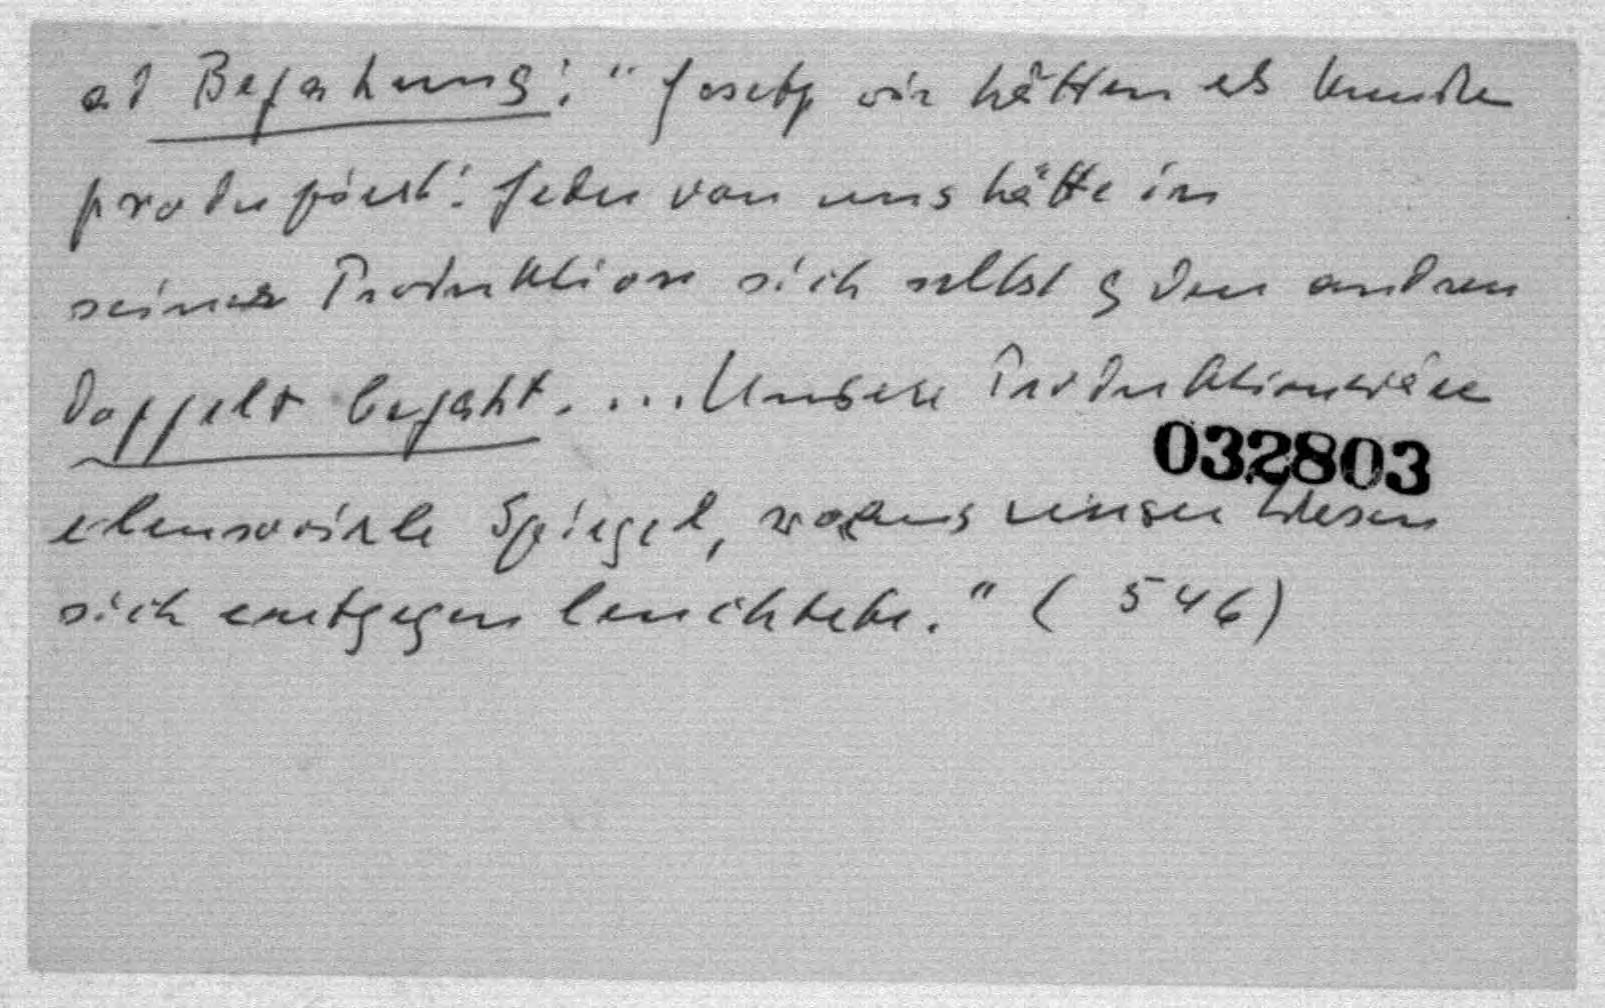 ad Bejahung: "Gesetzt wir hätten als Menschen
produziert: Jeder von uns hätte in
seiner Produktion sich selbst & den andren
doppelt bejaht. ... Unsere Produktion wäre
032803
ebensoviele Spiegel, woraus unser Wesen
sich entgegen leuchtete." (546)